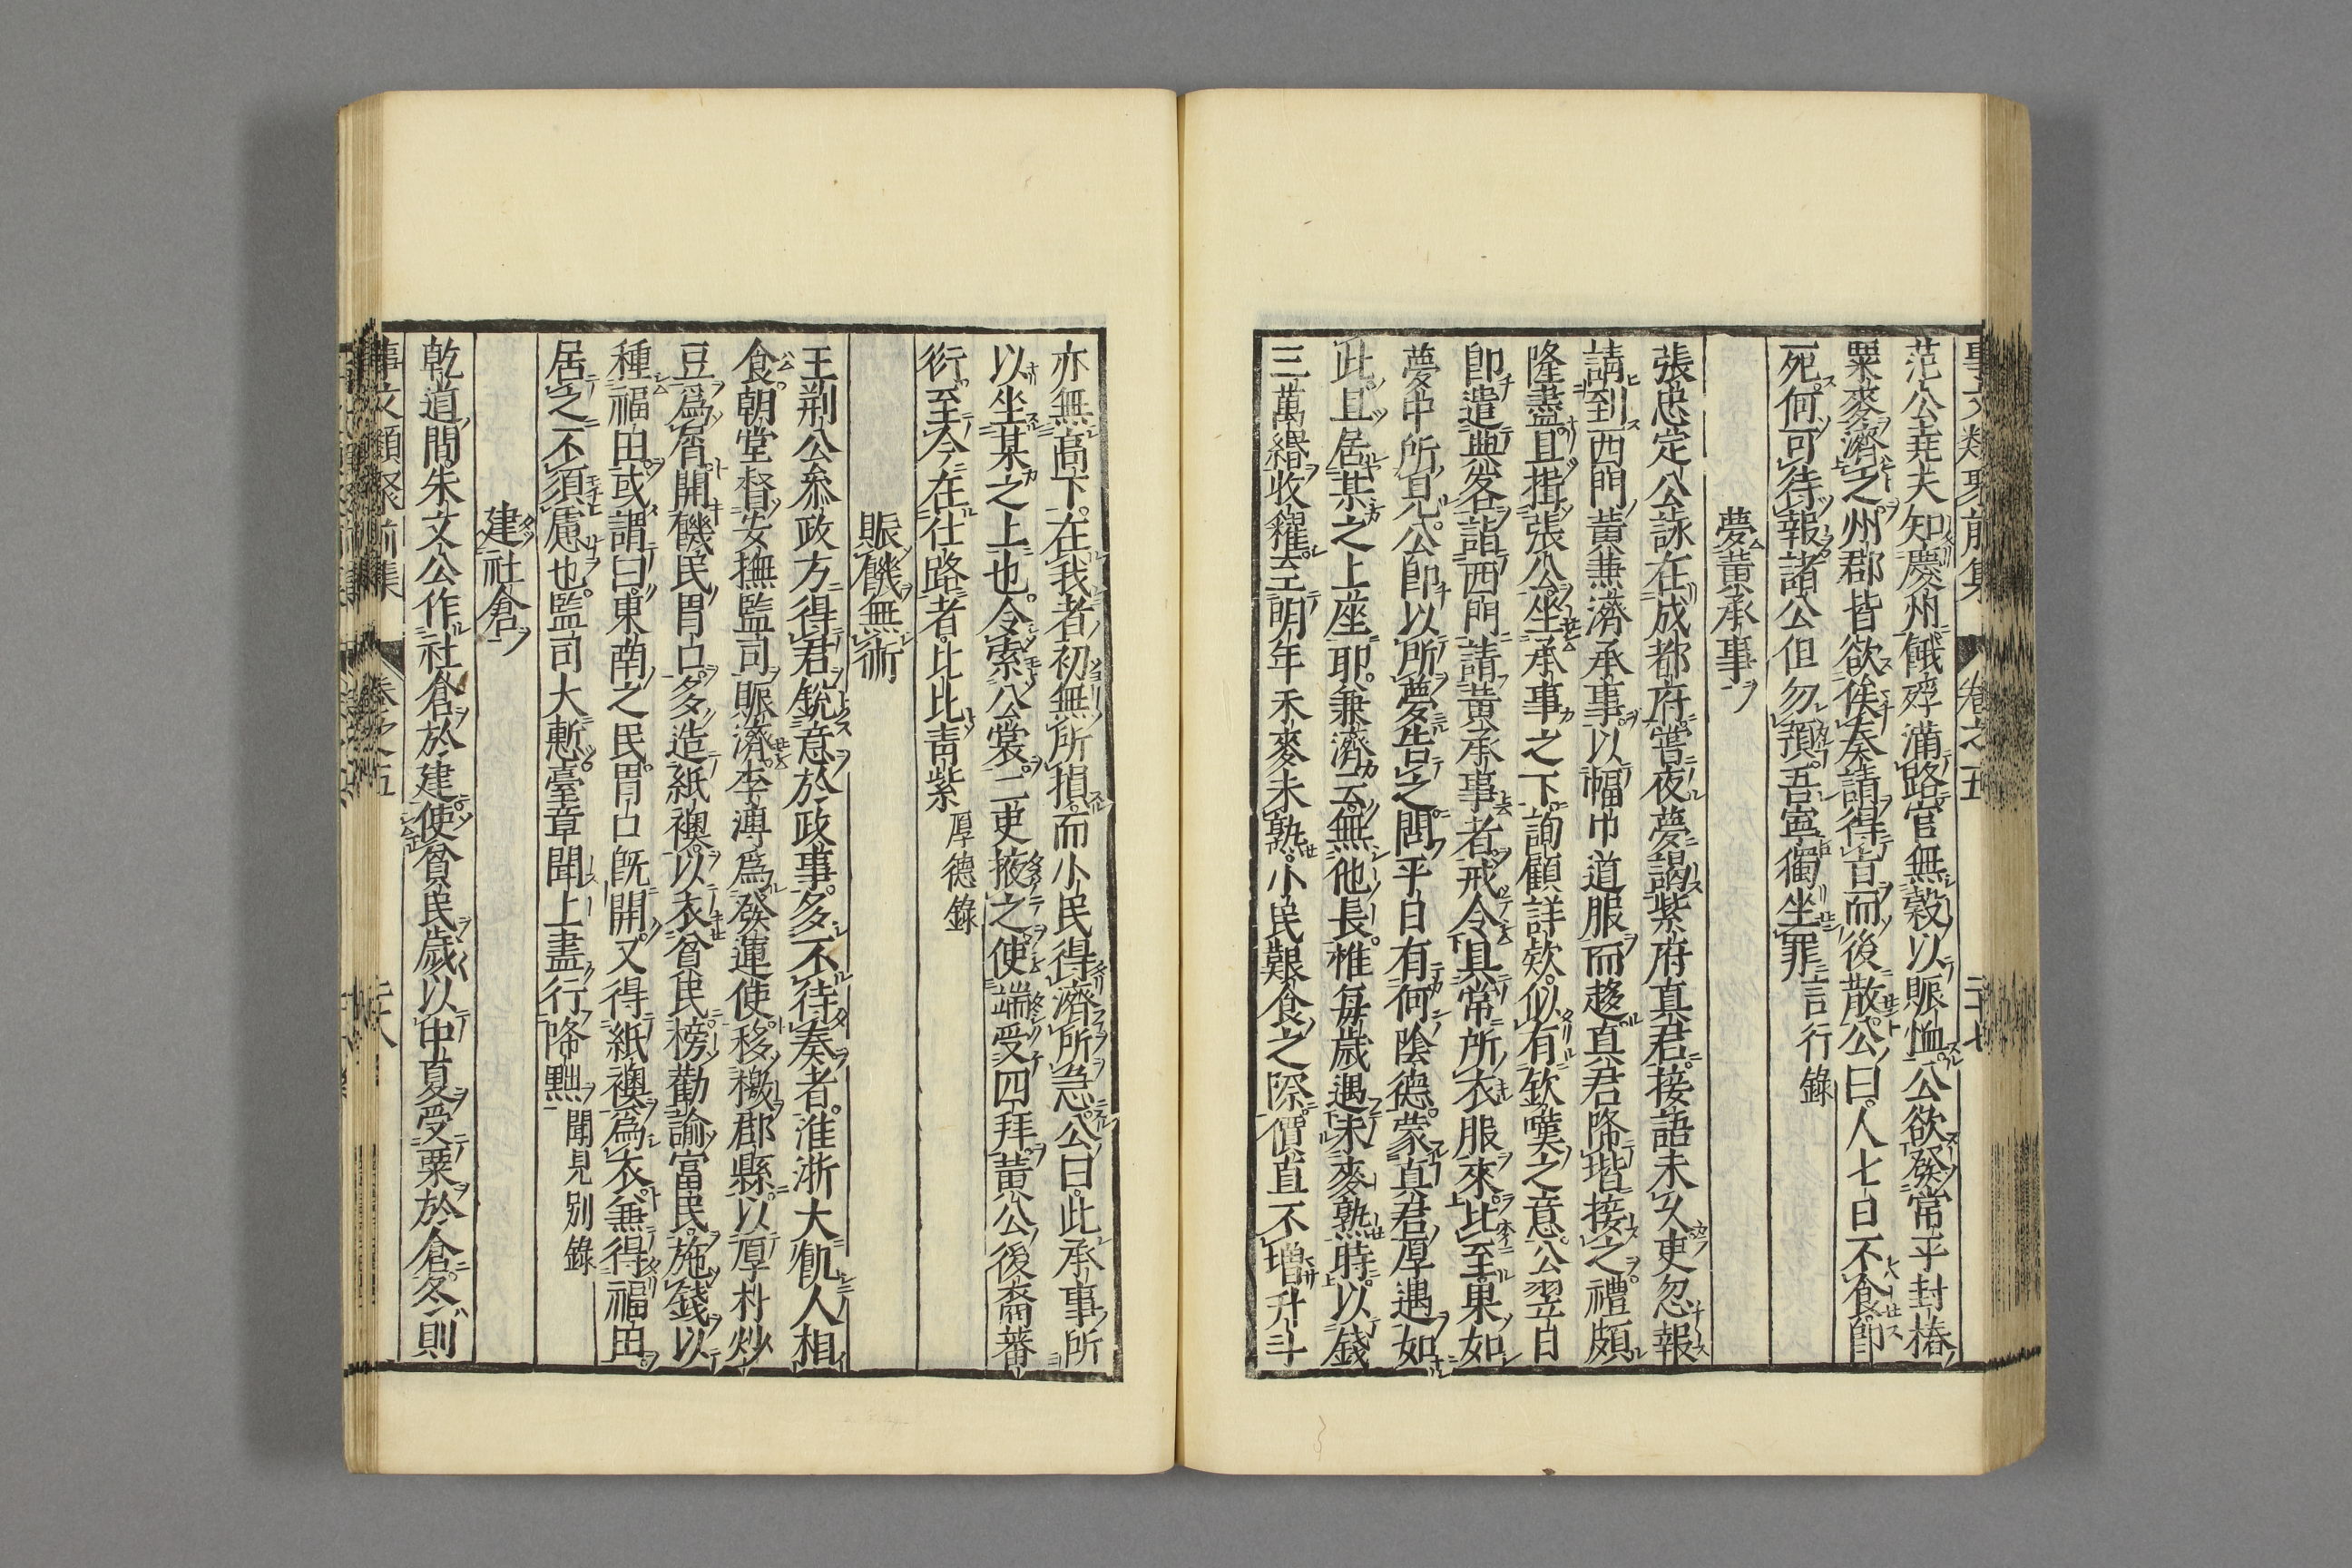 事文類聚前集 卷之五 二十七
范公堯夫知慶州餓殍滿路官無穀以賑恤公欲發常平封樁
粟麥濟之州郡皆欲俟奏請得旨而後散公曰人七日不食即
死何可待報諸公但勿預吾寧獨坐罪 言行錄
夢黃承事
張忠定公詠在成都府嘗夜夢謁紫府真君接語未乆吏忽報
請到西門黃兼濟承事以幅巾道服而趍真君降堦接之禮頗
隆盡且揖張公坐承事之下詢顧詳欵似有欽嘆之意公翌日
即遣典客詣西門請黃承事者戒令具常所衣服來比至果如
夢中所見公即以所夢告之問平日有何陰德蒙真君厚遇如
此且居某之上座耶兼濟云無他長惟每歲遇禾麥熟時以錢
三萬緡收糴至明年禾麥未熟小民艱食之際價直不增升斗
亦無高下在我者初無所損而小民得濟所急公曰此承事所
以坐某之上也令索公裳二吏掖之使端受四拜黃公後裔蕃
衍至今在仕路者比比青紫 厚德錄
賑饑無術
王荆公叅政方得君銳意於政事多不待奏者淮浙大飢人相
食朝堂督安撫監司賑濟李溥爲發運使移檄郡縣以厚朴炒
豆爲屑開饑民胃口多造紙襖以衣貧民榜勸諭富民施錢以
種福田或謂曰東南之民胃口既開又得紙襖爲衣兼得福田
居之不須慮也監司大慙臺章聞上盡行降黜 聞見別錄
建社倉
乾道間朱文公作社倉於建使貧民歲以中夏受粟於倉冬則
事文類聚前集 卷之五 二十八